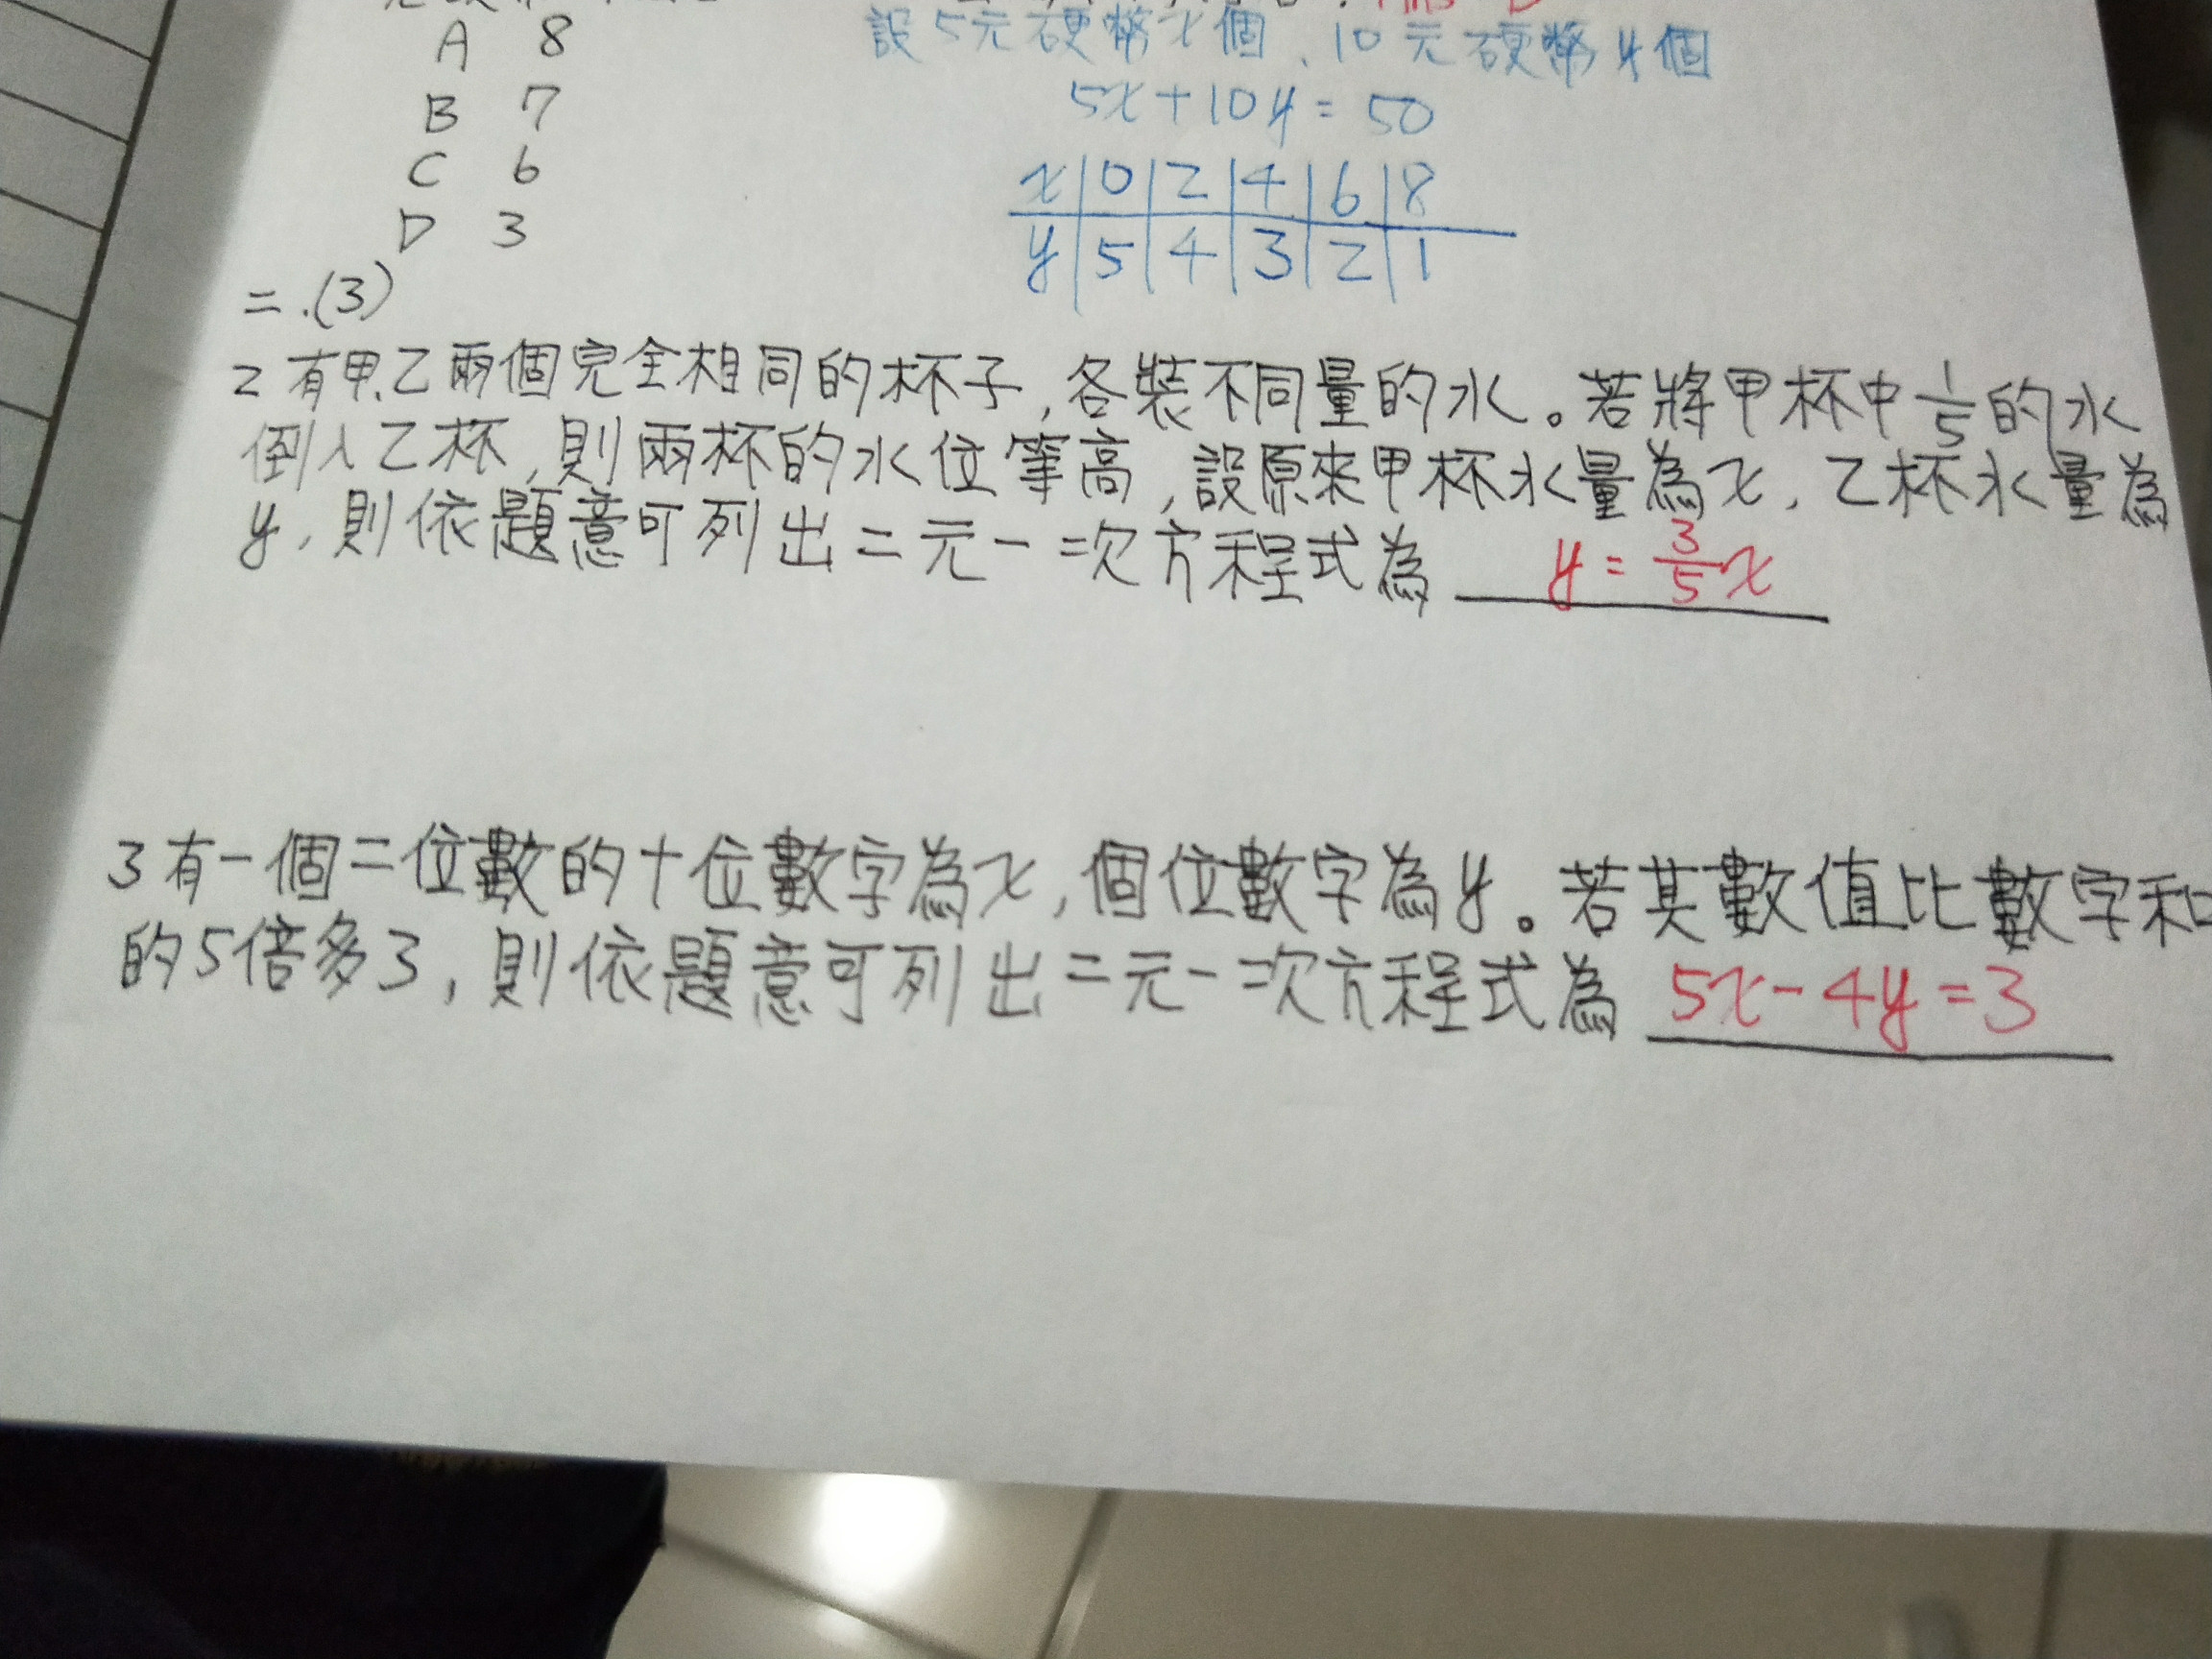 A 8
B 7
C 6
D 3
設5元硬幣x個、10元硬幣y個
5x+10y=50
x 0 2 4 6 8
y 5 4 3 2 1
二.(3)
2 有甲、乙兩個完全相同的杯子,各裝不同量的水。若將甲杯中1/5的水
倒入乙杯,則兩杯的水位等高,設原來甲杯水量為x,乙杯水量為
y,則依題意可列出二元一次方程式為 y=3/5x
3 有一個二位數的十位數字為x,個位數字為y。若其數值比數字和
的5倍多3,則依題意可列出二元一次方程式為 5x-4y=3